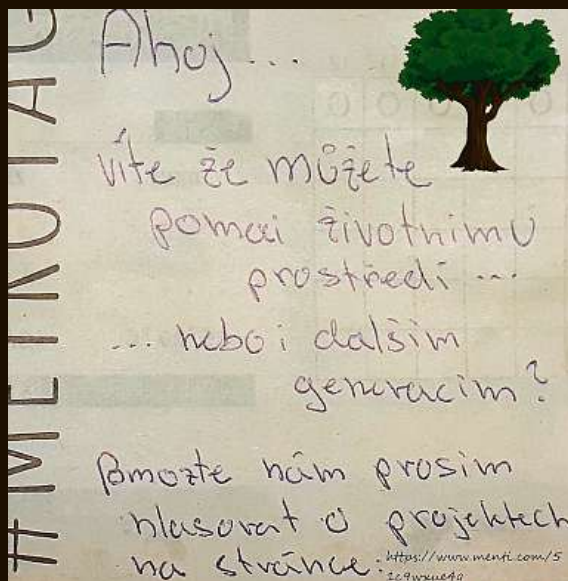 #METROTAG
Ahoj...
Víte že můžete
pomoci životnímu
prostředí...
... nebo i dalším
generacím?
Pomozte nám prosím
hlasovat o projektech
na stránce:
https://www.menti.com/5
1c9wxue4g